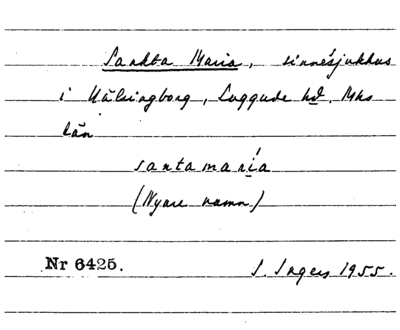 Sankta Maria, sinnessjukhus
i Hälsingborg, Luggude hd, Mhs
län
santamaría
(Nyare namn.)
Nr 6425. I. Ingers 1955.